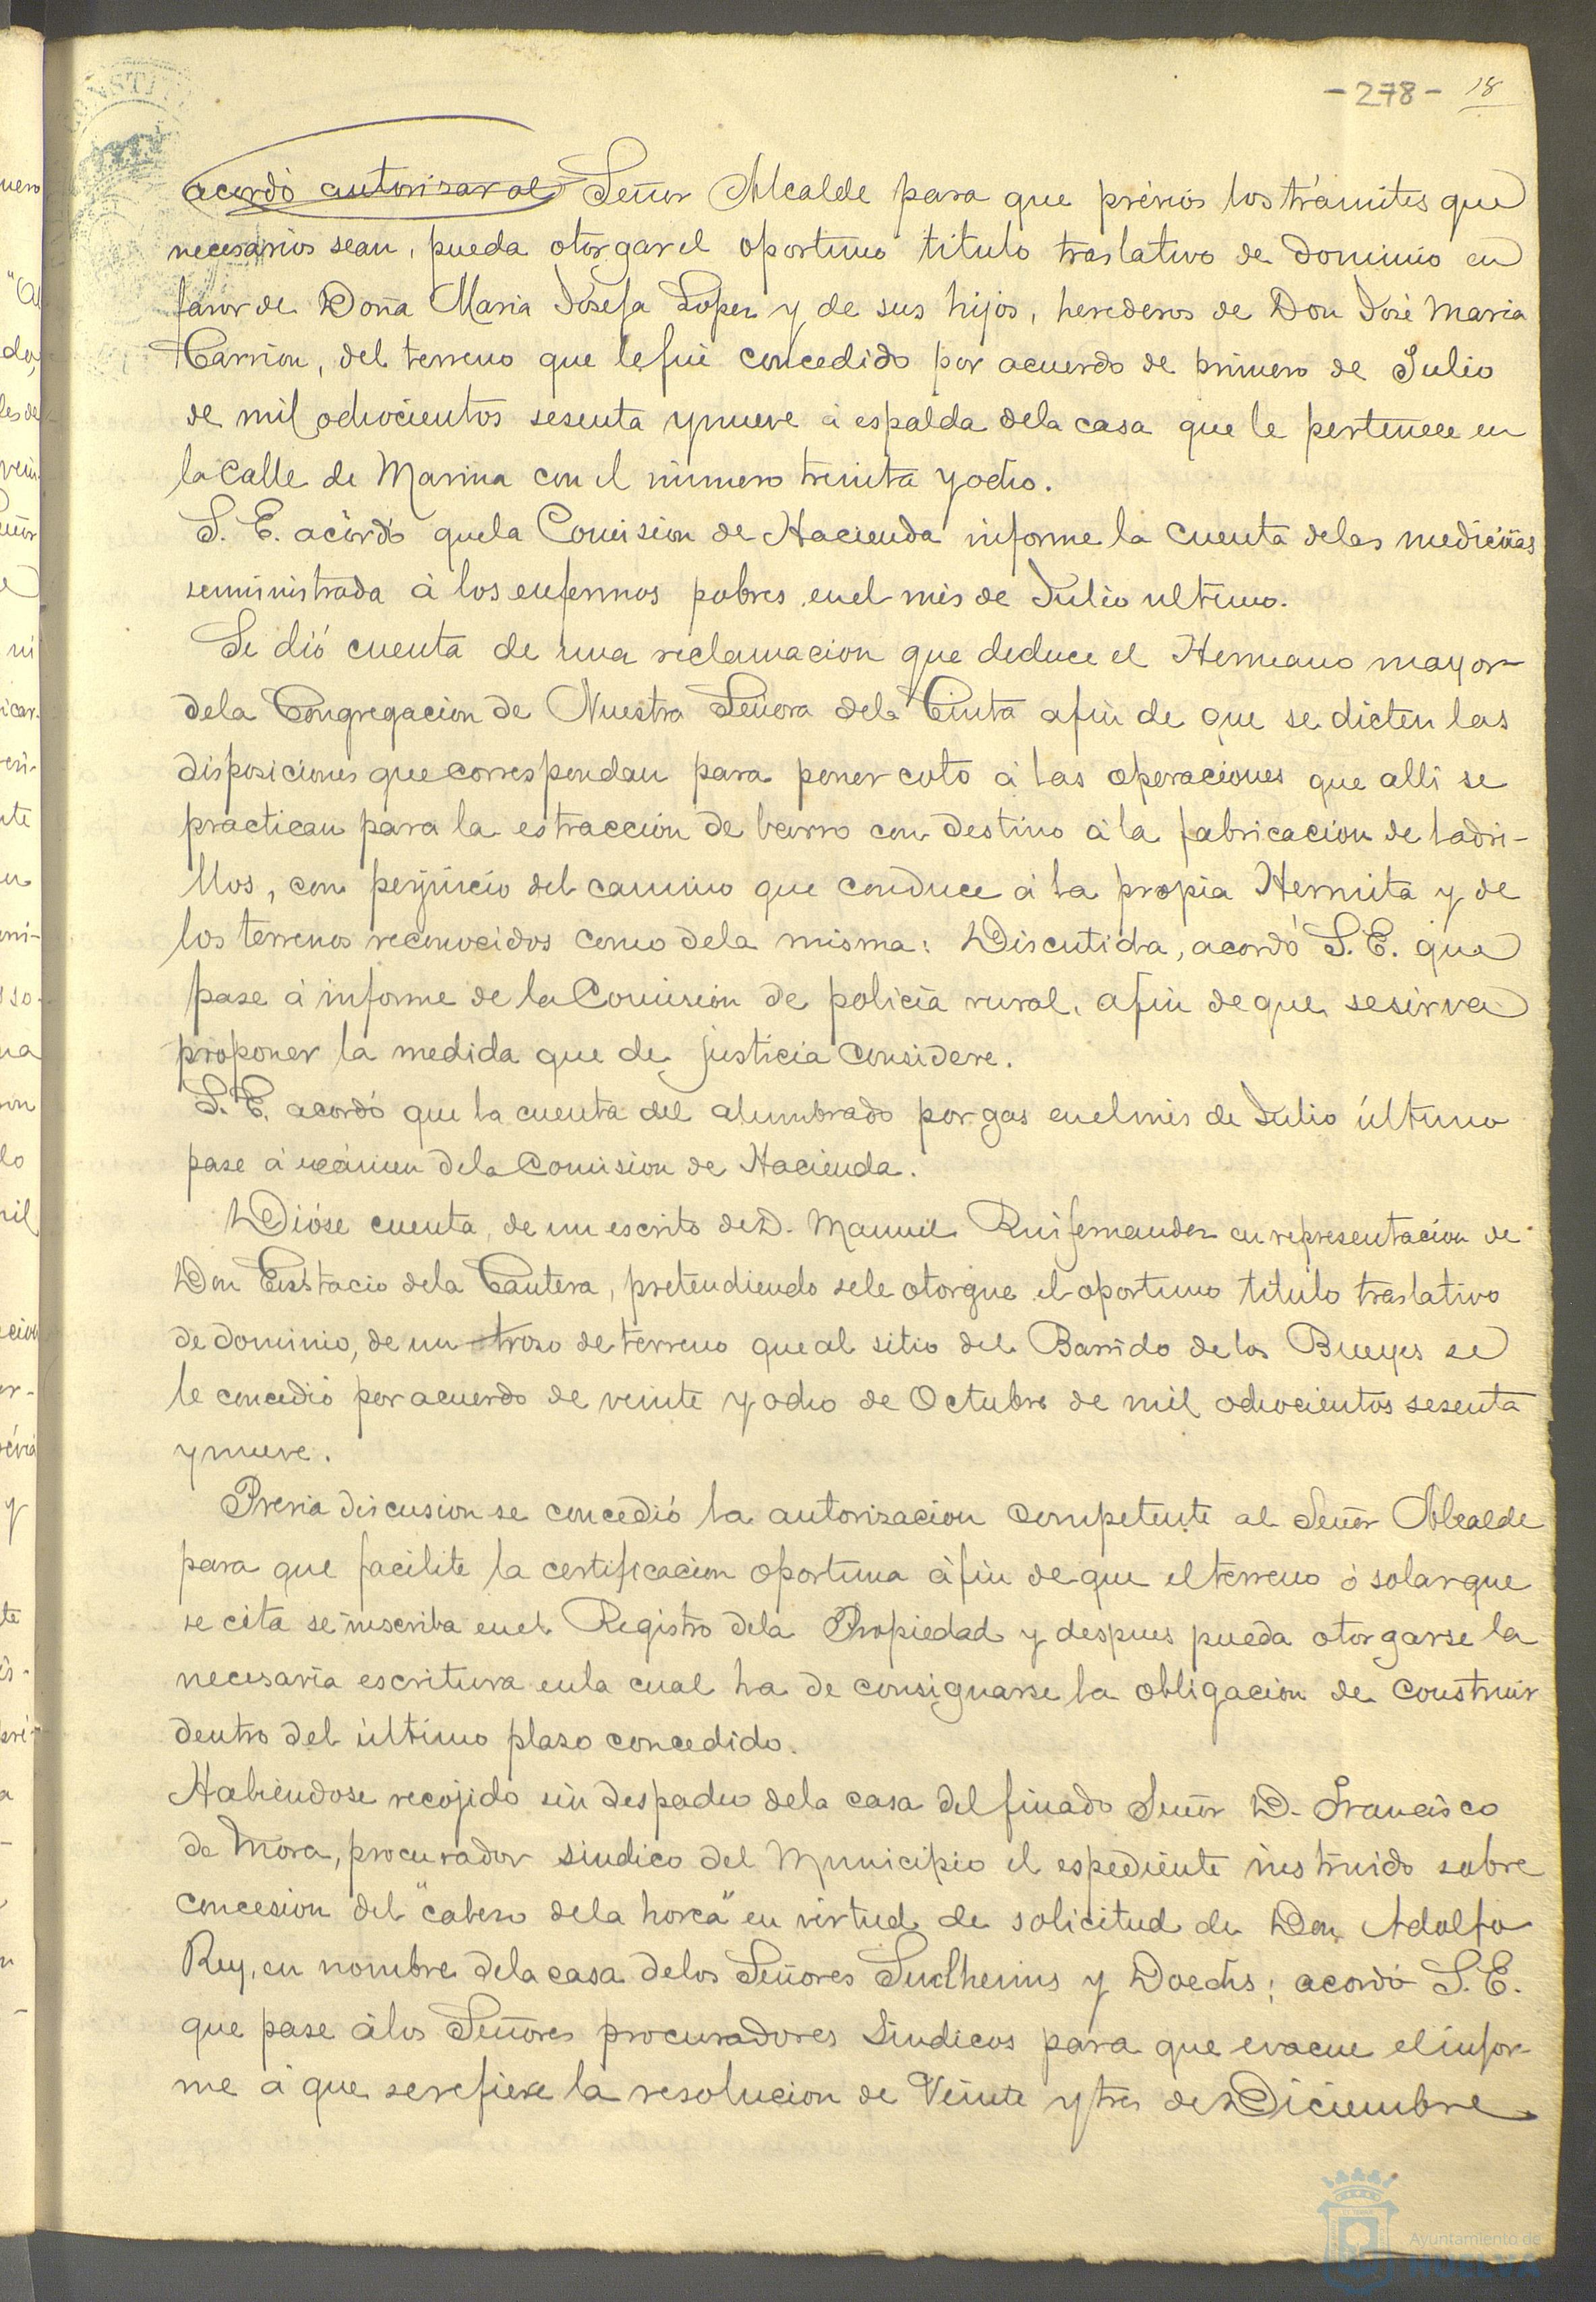 -278- 18
acordó autorizar al Señor Alcalde para que prévios los trámites que
necesarios sean, pueda otorgar el oportuno titulo traslativo de dominio en
favor de Doña Maria Josefa Lopez y de sus hijos, herederos de Don José Maria
Carrion, del terreno que le fué concedido por acuerdo de primero de Julio
de mil ochocientos sesenta y nueve á espalda de la casa que le pertenece en
la calle de Marina con el número treinta y ocho.
S. E. acordó que la Comision de Hacienda informe la cuenta de las medicinas
suministrada á los enfermos pobres en el mes de Julio ultimo.
Se dió cuenta de una reclamacion que deduce el Hermano mayor
de la Congregacion de Nuestra Señora de la Cinta afin de que se dicten las
disposiciones que correspondan para poner coto á las operaciones que alli se
practican para la estracción de barro con destino á la fabricacion de ladri-
llos, con perjuicio del camino que conduce á la propia Hermita y de
los terrenos reconocidos como de la misma: Discutida, acordó S. E. que
pase á informe de la Comision de policía rural, afin de que se sirva
proponer la medida que de justicia considere.
S. E. acordó que la cuenta del alumbrado por gas en el mes de Julio último
pase á exámen de la Comision de Hacienda.
Dióse cuenta de un escrito de D. Manuel Ruifernandez en representacion de
Don Eustacio de la Cantera, pretendiendo se le otorgue el oportuno titulo traslativo
de dominio, de un trozo de terreno que al sitio del Barrido de los Bueyes se
le concedió por acuerdo de veinte y ocho de Octubre de mil ochocientos sesenta
y nueve.
Previa discusion se concedió la autorizacion competente al Señor Alcalde
para que facilite la certificacion oportuna á fin de que el terreno ó solar que
se cita se inscriba en el Registro de la Propiedad y despues pueda otorgarse la
necesaria escritura en la cual ha de consignarse la obligacion de construir
dentro del último plazo concedido.
Habiendose recojido sin despacho de la casa del finado Señor D. Francisco
de Mora, procurador sindico del Municipio el espediente instruido sobre
concesion del "cabezo de la horca" en virtud de solicitud de Don Adolfo
Rey, en nombre de la casa de los Señores Sudheims y Doechs; acordó S. E.
que pase á los Señores procuradores Sindicos para que evacue el infor-
me á que se refiere la resolucion de Veinte y tres de Diciembre
Ayuntamiento de
HUELVA